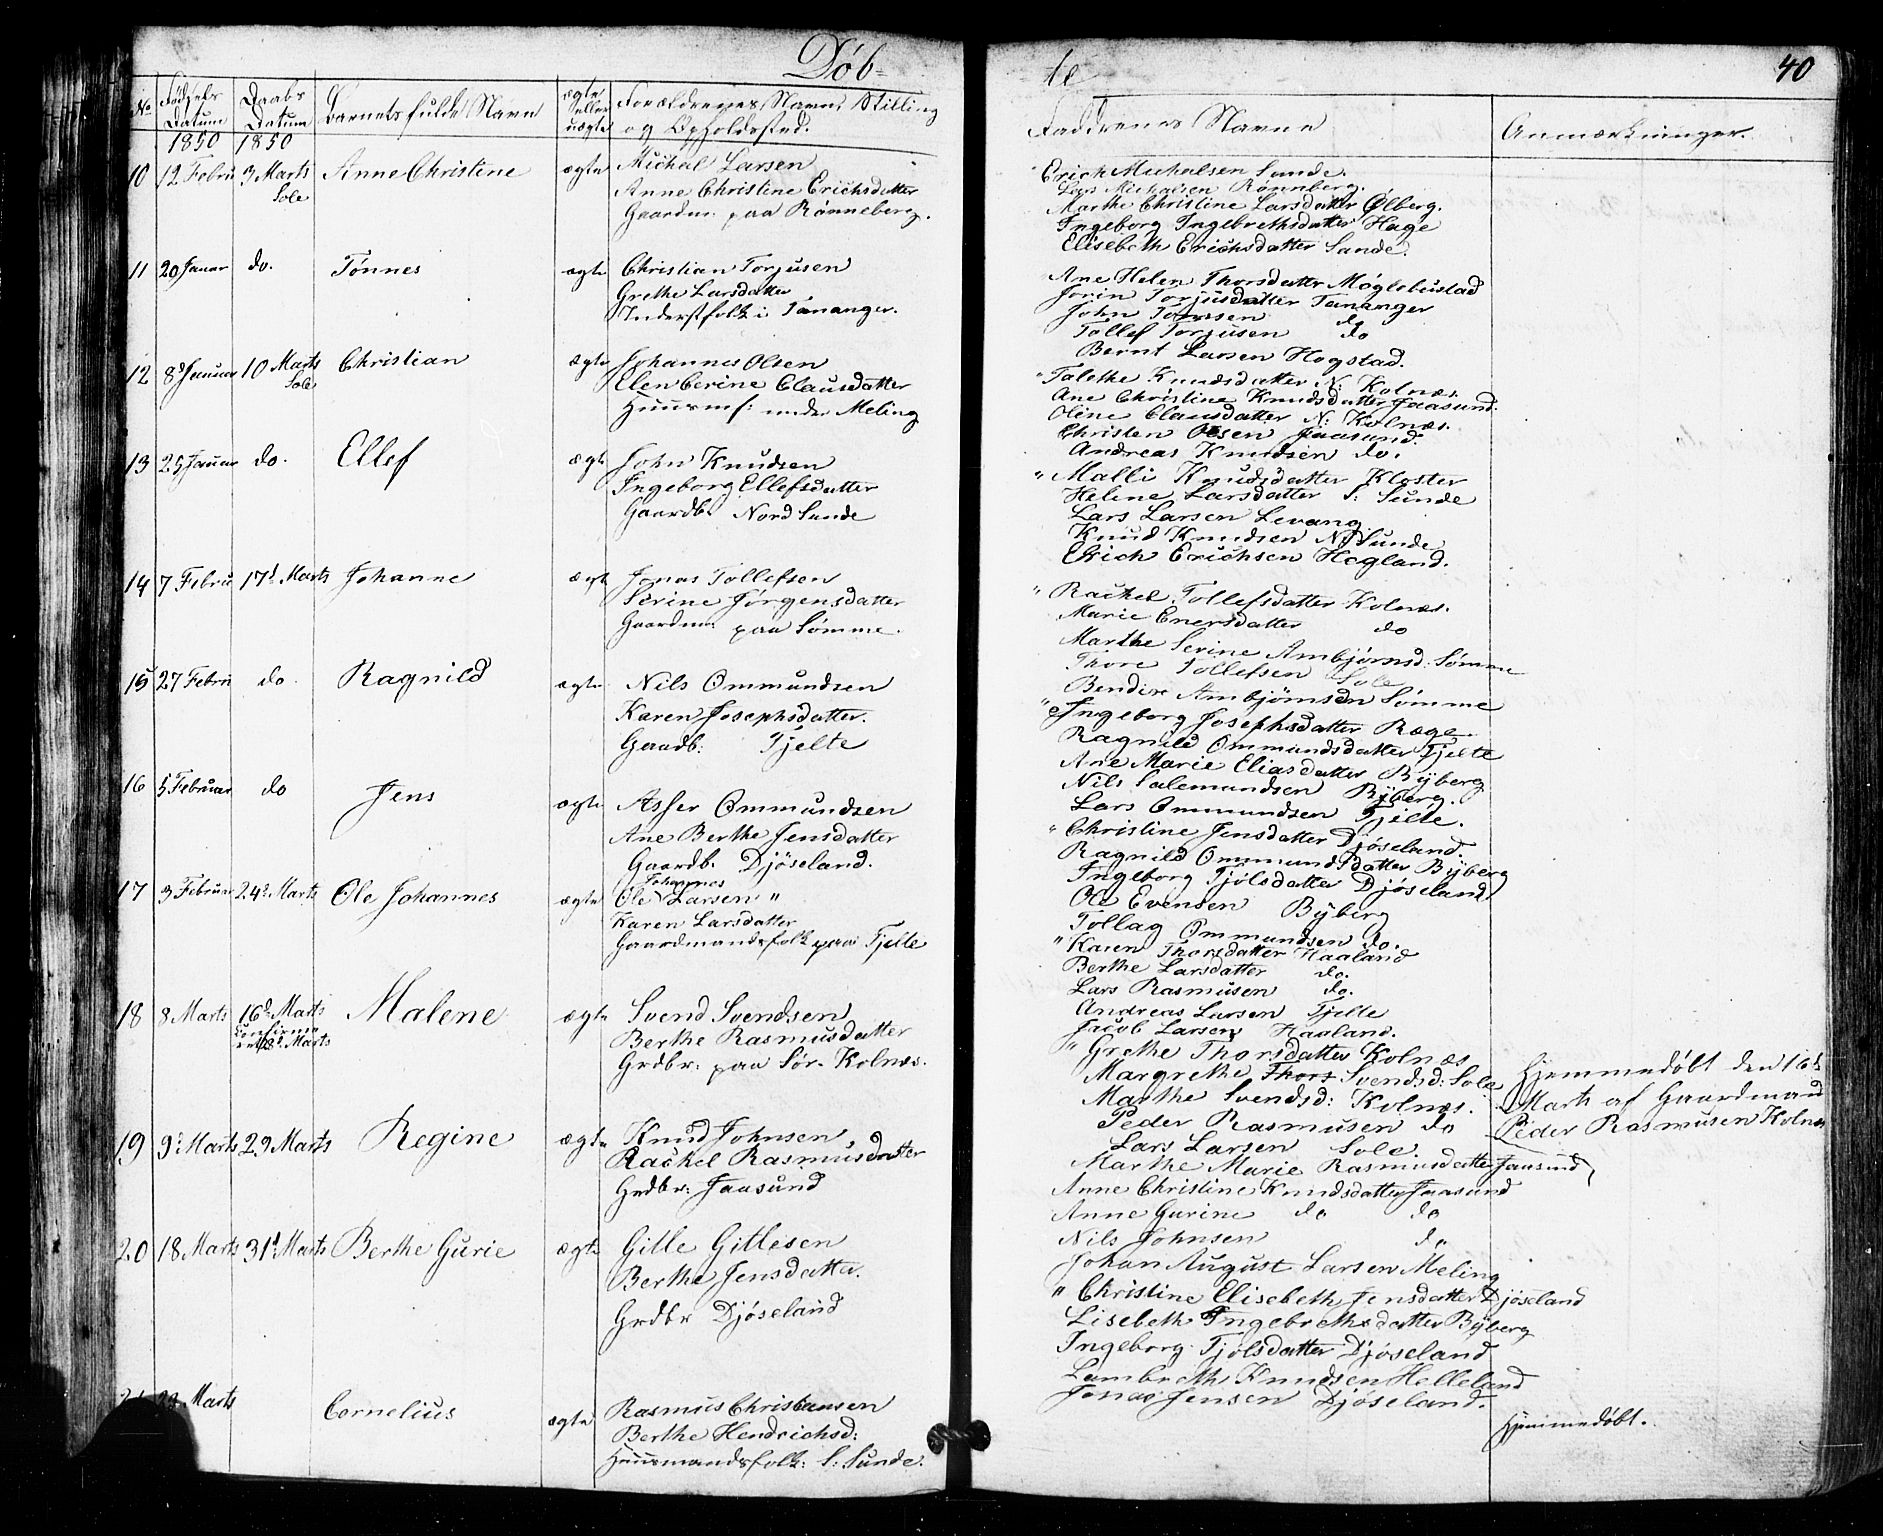 Døb-
№ Fødsels Datum Daabs Datum Barnets fulde Navn ægte eller uægte Forældrenes Navn, Stilling og Opholdsted.
1850 1850
10 12 Febru 3 Marts Sole Anne Christine ægte Michal Larsen
Anne Christine Erichsdatter
Gaardm: paa Rønneberg.
11 20 Januar do. Tønnes ægte Christian Torjusen
Grethe Larsdatter
Inderstfolk i Tananger.
12 8d Januar 10 Marts Sole Christian ægte Johannes Olsen
Elen Cerine Clausdatter
Huusmf: under Meling
13 25 Januar do. Ellef ægte John Knudsen
Ingeborg Ellefsdatter
Gaardb. Nord Sunde
14 7 Febru 17d Marts Johanne ægt Jonas Tollefsen
Serine Jørgensdatter
Gaardm: paa Sømme.
15 27 Febru do. Ragnild ægte Nils Ommundsen
Karen Josephsdatter.
Gaardb: Tjelte
16 5 Februar do Jens ægte Asser Ommundsen
Ane Berthe Jensdatter
Gaardb. Djøseland.
17 3 Februar 24d Marts Ole Johannes ægte Ole Johannes Larsen "
Karen Larsdatter
Gaardmandsfolk paa Tjelte
18 8 Marts 16d Marts Malene ægte Svend Svendsen
Berthe Rasmusdatter
Grdbr: paa Sør- Kolnæs.
19 9d Marts 29 Marts Regine ægte Knud Johnsen
Rackel Rasmusdatter
Grdbr: Jaasund
20 18 Marts 31d Marts Berthe Gurie ægte Gitle Gitlesen
Berthe Jensdatter.
Grdbr Djøseland
Marts Cornelius ægte Rasmus Christiansen
Berthe Hendrichsd:
Huusmandsfolk: S: Sunde.
te
40
Faddrenes Navne Anmærkninger.
Erich Michalsen Sande.
Lars Michalsen Rønnberg.
Marthe Christine Larsdatter Ølberg.
Ingeborg Ingebrethsdatter Hage
Elisebeth Erichsdatter Sande.
Ane Helen Thorsdatter Møglebustad
Jorin Torjusdatter Tananger
John Tønnesen do
Tollef Torjusen do
Bernt Larsen Hogstad.
" Talethe Knudsdatter N: Kolnæs.
Ane Christine Knudsdatter Jaasund.
Oline Clausdatter N: Kolnæs.
Christen Olsen Jaasund.
Andreas Knudsen do.
" Malli Knudsdatter Kloster
Helene Larsdatter S: Sunde
Lars Larsen Levang
Knud Knudsen N. Sunde
Erich Erichsen Hogland.
" Rachel Tollefsdatter Kolnæs.
Marie Enersdatter do
Marthe Serine Ambjørnsd: Sømme
Thore Tollefsen Sole
Bendix Ambjørnsen Sømme
" Ingeborg Josephsdatter Ræge
Ragnild Ommundsdatter Tjelte
Ane Marie Eliasdatter Byberg
Nils Salemundsen Byberg.
Lars Ommundsen Tjelte.
" Christine Jensdatter Djøseland
Ragnild Ommundsdatter Byberg
Ingeborg Tjølsdatter Djøseland
Ole Evensen Byberg
Tollag Ommundsen do.
" Karen Thorsdatter Haaland
Berthe Larsdatter do.
Lars Rasmusen do.
Andreas Larsen Tjelte
Jacob Larsen Haaland.
" Grethe Thorsdatter Kolnæs
Margrethe Thors Svendsd: Sole
Marthe Svendsd: Kolnæs.
Peder Rasmusen do
Lars Larsen Sole.
Hjemmedøbt den 16d
Marts af Gaardmand
Peder Rasmusen Kolnæs
Marthe Marie Rasmusdatter Jaasund
Anne Christine Knudsdatter Jaasund
Anne Gurine do do
Nils Johnsen do
Johan August Larsen Meling
" Christine Elisebeth Jensdatter Djøseland
Lisebeth Ingebrethsdatter Byberg
Ingeborg Tjølsdatter Djøseland
Lambreth Knudsen Helleland
Jonas Jensen Djøseland.
Hjemmedøbt.